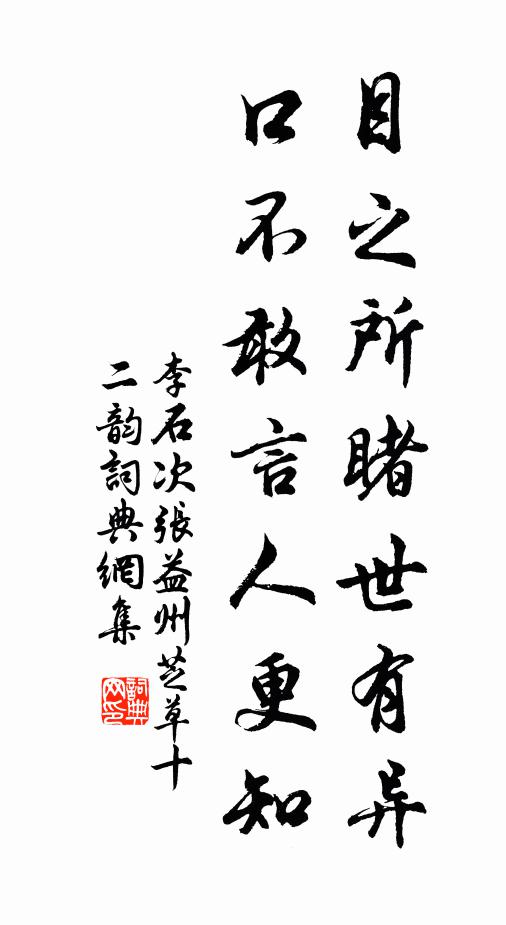 目之所睹世有异
口不敢言人更知
李石次張益州芝草十
二韵詞典網集
詞典
网印